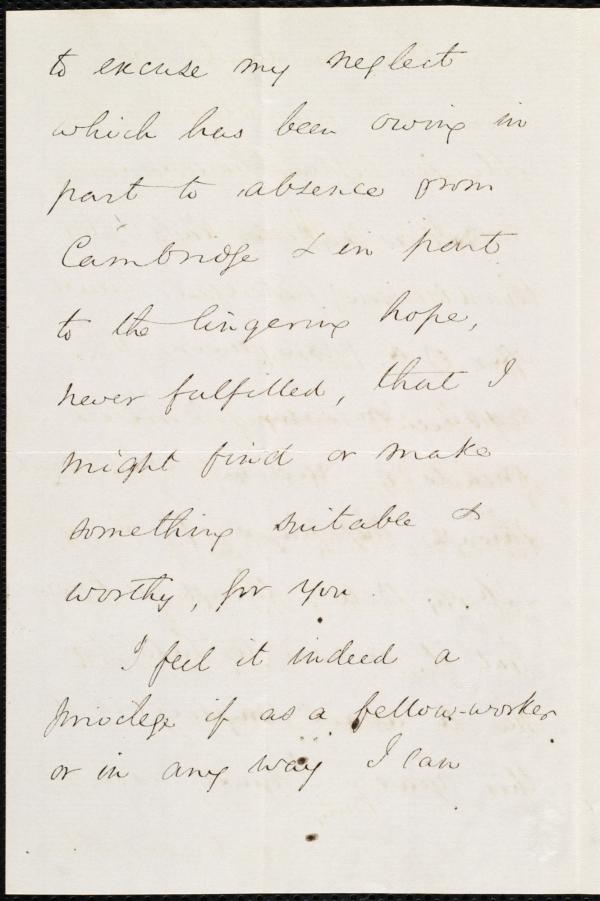 to excuse my neglect
which has been owing in
part to absence from
Cambridge & in part
to the lingering hope,
never fulfilled, that I
might find or make
something suitable &
worthy, for you.
I feel it indeed a
privilege if as a fellow-worker
or in any way I can